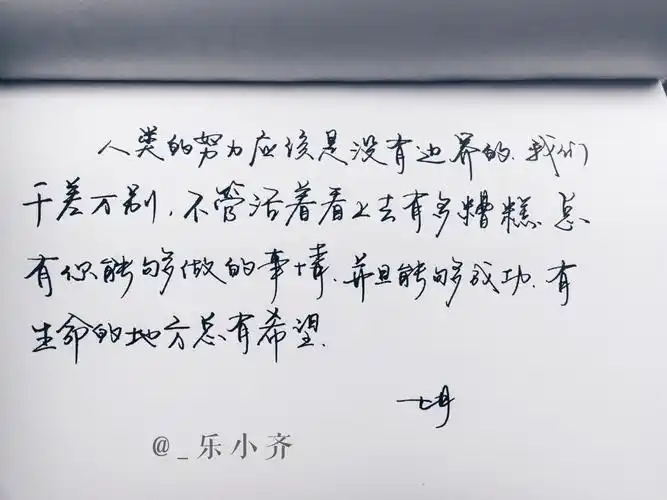 人类的努力应该是没有边界的.我们
千差万别,不管活着看上去有多糟糕.总
有你能够做的事情.并且能够成功.有
生命的地方总有希望.
@_乐小齐